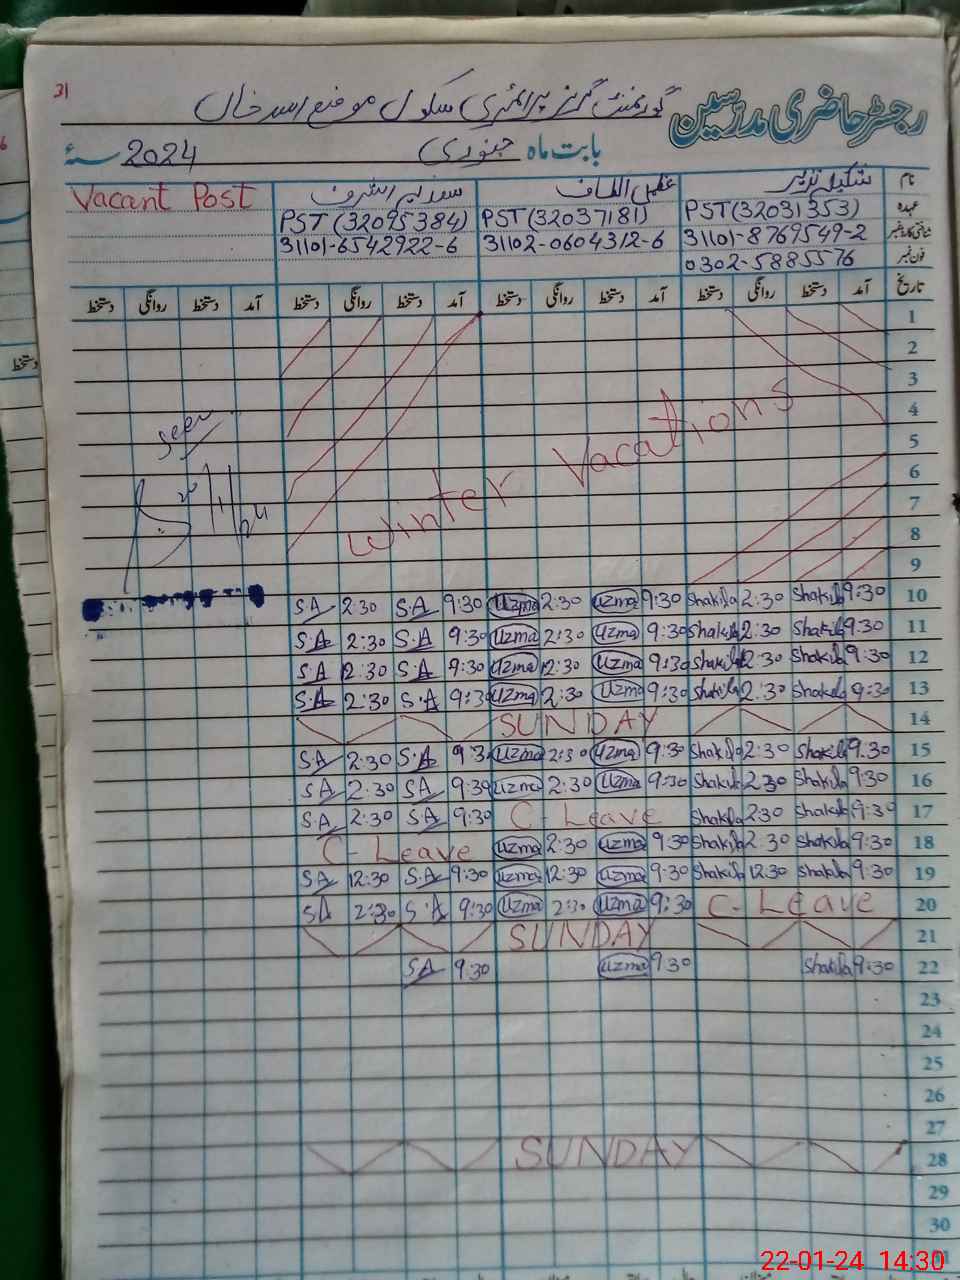 31
رجسٹر حاضری مدرسین گورنمنٹ گرلز پرائمری سکول موضع اسد خاں
بابت ماہ جنوری 2024 سنۂ
نام شکیلہ نذیر عظمیٰ الطاف Vacant Post
عہدہ PST(32031353) PST(32037181) PST(32095384)
شناختی کارڈ نمبر 31101-8769549-2 31102-0604312-6 31101-6542922-6
فون نمبر 0302-5885576
تاریخ آمد دستخط روانگی دستخط آمد دستخط روانگی دستخط آمد دستخط روانگی دستخط آمد دستخط روانگی دستخط
دستخط
1
2
3
4
5
6
7
8
9
Winter Vacations
Seen
S.A 2:30 S.A 9:30 Uzma 2:30 Uzma 9:30 Shakila 2:30 Shakila 9:30 10
S.A 2:30 S.A 9:30 Uzma 2:30 Uzma 9:30 Shakila 2:30 Shakila 9:30 11
S.A 12:30 S.A 9:30 Uzma 12:30 Uzma 9:30 Shakila 12:30 Shakila 9:30 12
S.A 2:30 S.A 9:30 Uzma 2:30 Uzma 9:30 Shakila 2:30 Shakila 9:30 13
SUNDAY 14
SA 2:30 S.A 9:30 Uzma 2:30 Uzma 9:30 Shakila 2:30 Shakila 9:30 15
SA 2:30 SA 9:30 Uzma 2:30 Uzma 9:30 Shakila 2:30 Shakila 9:30 16
S.A 2:30 S.A 9:30 C-Leave Shakila 2:30 Shakila 9:30 17
C-Leave Uzma 2:30 Uzma 9:30 Shakila 2:30 Shakila 9:30 18
SA 12:30 S.A 9:30 Uzma 12:30 Uzma 9:30 Shakila 12:30 Shakila 9:30 19
SA 2:30 S.A 9:30 Uzma 2:30 Uzma 9:30 C-Leave 20
SUNDAY 21
SA 9:30 Uzma 9:30 Shakila 9:30 22
23
24
25
26
27
SUNDAY 28
29
30
22-01-24 14:30